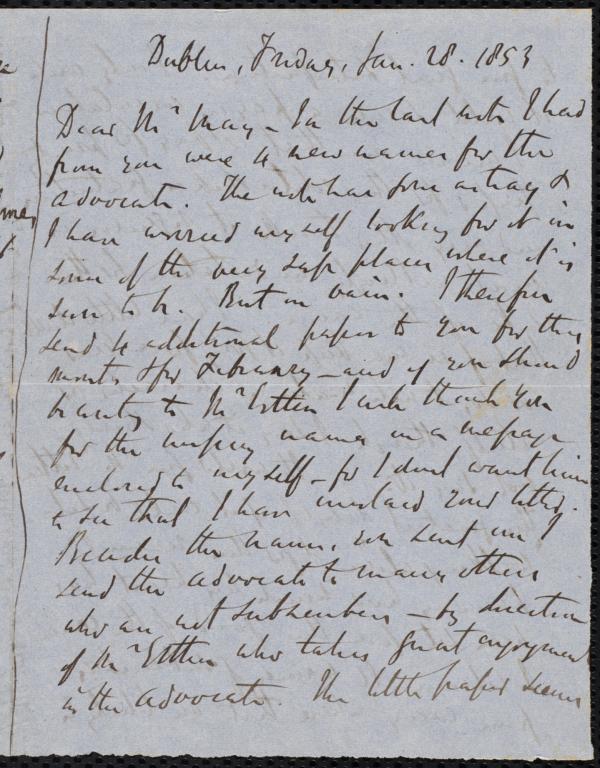 Dublin, Friday, Jan. 28. 1853
Dear Mr May - In the last note I had
from you were 4 new names for the
Advocate. The note has gone astray &
I have worried myself looking for it in
some of the very safe places where it is
sure to be. But in vain. I therefore
send 4 additional papers to you for this
month & for February - and if you should
be writing to Mr Estlin I will thank you
for the missing names in a message
enclosed to myself - for I don't want him
to see that I have mislaid your letter.
Besides the names you sent me I
send the Advocate to many others
who are not subscribers - by direction
of Mr Estlin who takes great enjoyment
in the Advocate. The little paper seems